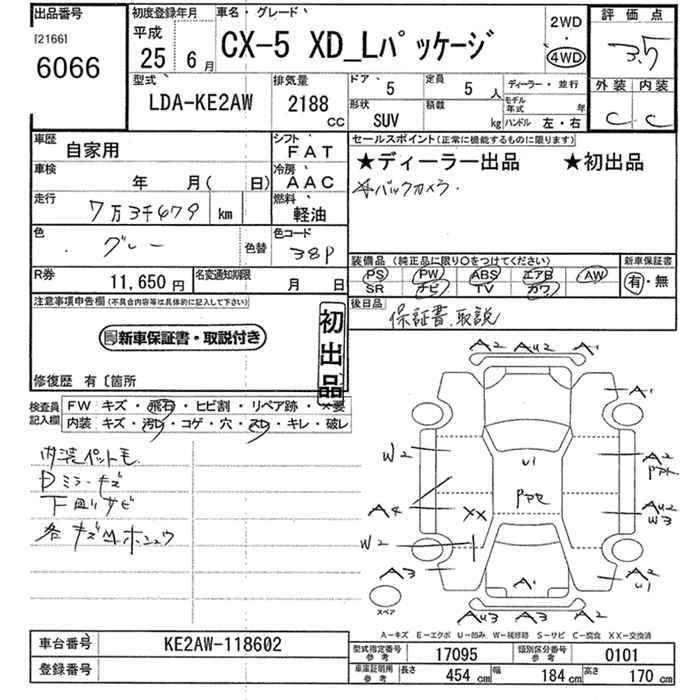 出品番号
[2166]
6066
初度登録年月
平成
25 6月
車名・グレード
CX-5 XD_Lパッケージ
2WD
・
4WD
評価点
3.5
外装 内装
C C
型式
LDA-KE2AW
排気量
2188
CC
ドア
5
定員
5人
ディーラー・並行
形状
SUV
積載
kg
モデル年式
年
ハンドル 左・右
車歴
自家用
シフト
FAT
車検
年 月( 日)
冷房
AAC
走行
7万3千679 km
燃料
軽油
色
グレー
色替
色コード
38P
R券
11,650円
名変通知期限
月 日
セールスポイント(正常に機能するものに限ります)
★ディーラー出品 ★初出品
★バックカメラ.
装備品(純正品に限り○をつけてください)
PS PW ABS エアB AW
SR ナビ TV カワ
新車保証書
有・無
後日品
保証書、取説
注意事項申告欄(不具合内容等は具体的に記入して下さい)
新車保証書・取説付き
初出品
修復歴 有〔箇所
検査員記入欄
FW キズ・飛石・ヒビ割・リペア跡・×要
内装 キズ・汚レ・コゲ・穴・スレ・キレ・破レ
内装ペットモ
Dミラーキズ
下廻リサビ
各キズ凹ホシュウ
A2 AU2 A1
A1
W2
U1
A2
PPナモ
A4
XX
AU2
W3
W2
A3
A1
U2
A1
AU3 A3 A2
スペア
A-キズ E-エクボ U-凹み W-補修跡 S-サビ C-腐食 XX-交換済
車台番号
KE2AW-118602
登録番号
型式指定番号
参考
17095
類別区分番号
参考
0101
車庫証明用
参考
長さ
454 cm
幅
184 cm
高さ
170 cm